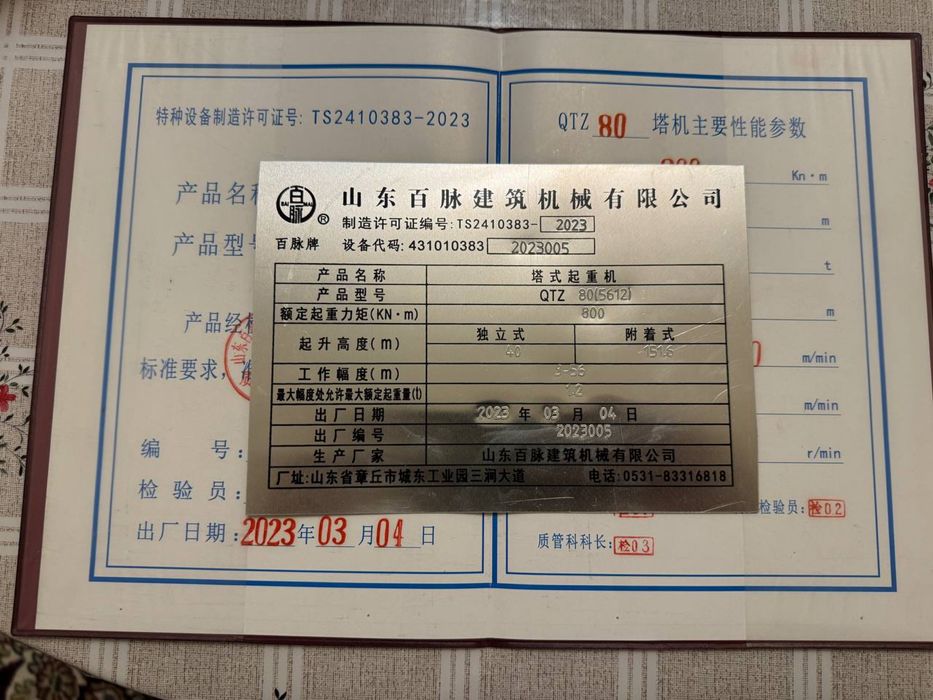 特种设备制造许可证号: TS2410383-2023
产品名称
产品型号
产品经检
标准要求,
编 号:
检 验 员:
出厂日期: 2023年03月04日
QTZ 80 塔机主要性能参数
Kn·m
m
t
m
m/min
m/min
r/min
检验员: 检02
质管科科长: 检03
百脉
BAI MAI
®
百脉牌
山东百脉建筑机械有限公司
制造许可证编号: TS2410383- 2023
设备代码: 431010383 2023005
产品名称 塔式起重机
产品型号 QTZ 80(5612)
额定起重力矩(KN·m) 800
起升高度(m) 独立式 附着式
40 151.6
工作幅度(m) 3-56
最大幅度处允许最大额定起重量(t) 1.2
出厂日期 2023 年 03 月 04 日
出厂编号 2023005
生产厂家 山东百脉建筑机械有限公司
厂址:山东省章丘市城东工业园三涧大道 电话:0531-83316818